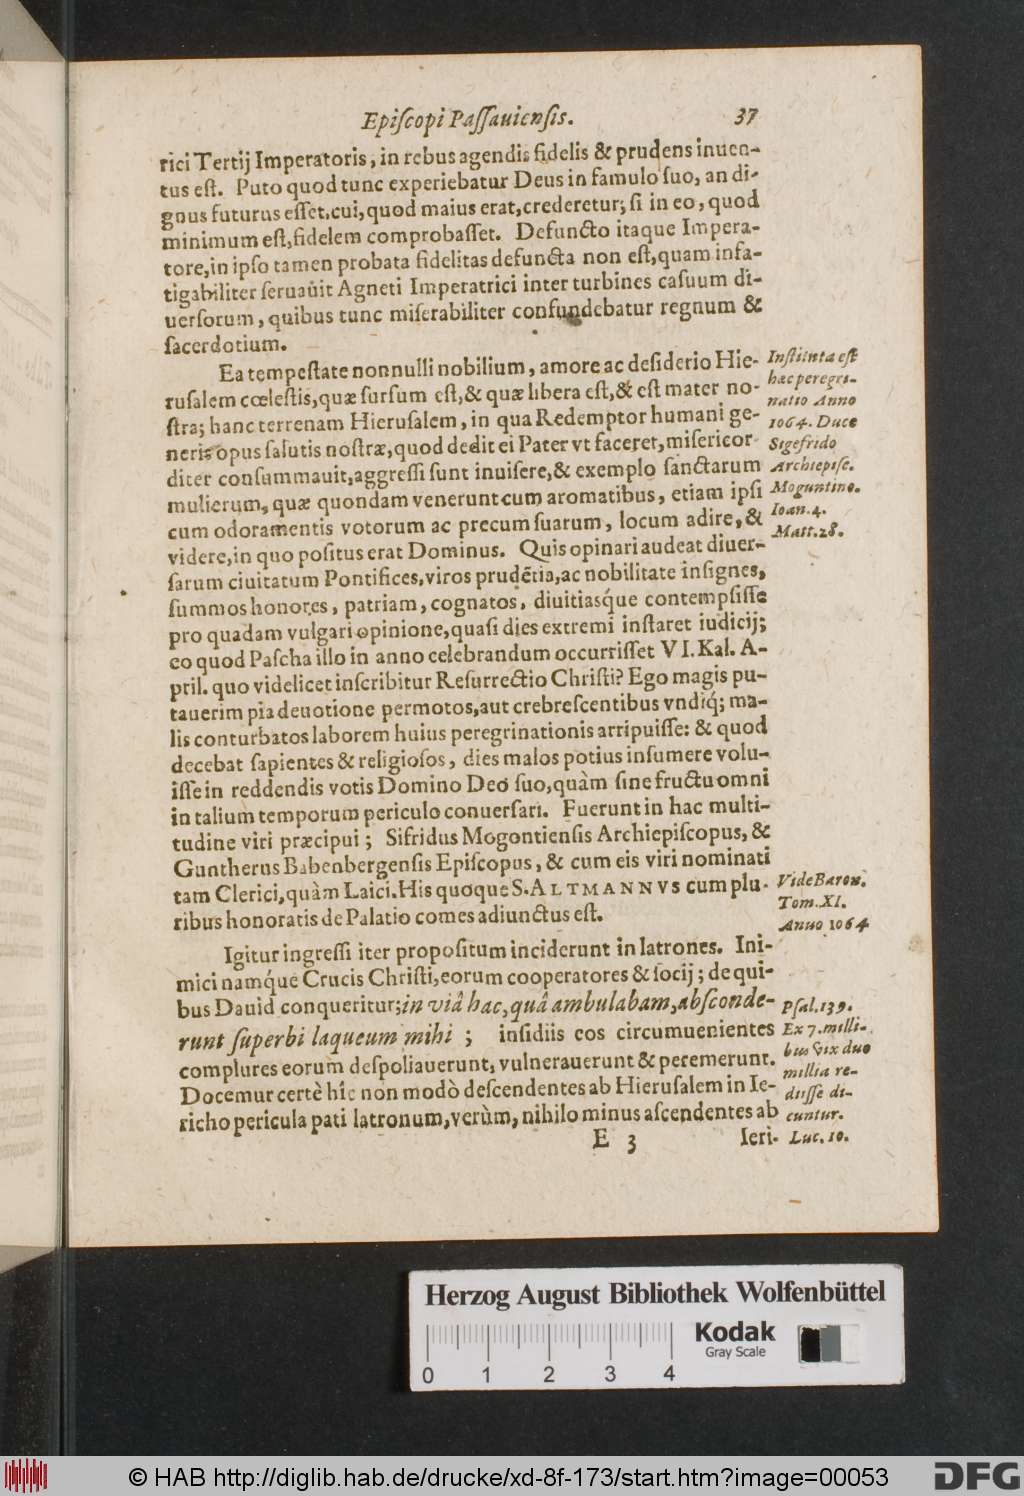 Episcopi Passauiensis. 37
rici Tertij Imperatoris, in rebus agendis fidelis & prudens inuen-
tus est. Puto quod tunc experiebatur Deus in famulo suo, an di-
gnus futurus esset, cui, quod maius erat, crederetur; si in eo, quod
minimum est, fidelem comprobasset. Defuncto itaque Impera-
tore, in ipso tamen probata fidelitas defuncta non est, quam infa-
tigabiliter seruauit Agneti Imperatrici inter turbines casuum di-
uersorum, quibus tunc miserabiliter confundebatur regnum &
sacerdotium.
Ea tempestate nonnulli nobilium, amore ac desiderio Hie-
rusalem cœlestis, quæ sursum est, & quæ libera est, & est mater no-
stra; hanc terrenam Hierusalem, in qua Redemptor humani ge-
neris opus salutis nostræ, quod dedit ei Pater vt faceret, misericor
diter consummauit, aggressi sunt inuisere, & exemplo sanctarum
mulierum, quæ quondam venerunt cum aromatibus, etiam ipsi
cum odoramentis votorum ac precum suarum, locum adire, &
videre, in quo positus erat Dominus. Quis opinari audeat diuer-
sarum ciuitatum Pontifices, viros prudẽtia, ac nobilitate insignes,
summos honores, patriam, cognatos, diuitiasq́ue contempsisse
pro quadam vulgari opinione, quasi dies extremi instaret iudicij;
eo quod Pascha illo in anno celebrandum occurrisset VI. Kal. A-
pril. quo videlicet inscribitur Resurrectio Christi? Ego magis pu-
tauerim pia deuotione permotos, aut crebrescentibus vndiq́; ma-
lis conturbatos laborem huius peregrinationis arripuisse: & quod
decebat sapientes & religiosos, dies malos potius insumere volu-
isse in reddendis votis Domino Deo suo, quàm sine fructu omni
in talium temporum periculo conuersari. Fuerunt in hac multi-
tudine viri præcipui; Sifridus Mogontiensis Archiepiscopus, &
Guntherus Babenbergensis Episcopus, & cum eis viri nominati
tam Clerici, quàm Laici. His quoque S. ALTMANNVS cum plu-
ribus honoratis de Palatio comes adiunctus est.
Igitur ingressi iter propositum inciderunt in latrones. Ini-
mici namq́ue Crucis Christi, eorum cooperatores & socij; de qui-
bus Dauid conqueritur; in viâ hac, quâ ambulabam, absconde-
runt superbi laqueum mihi; insidiis eos circumuenientes
complures eorum despoliauerunt, vulnerauerunt & peremerunt.
Docemur certè hîc non modò descendentes ab Hierusalem in Ie-
richo pericula pati latronum, verùm, nihilo minus ascendentes ab
E 3 Ieri-
Instituta est
hæc peregri-
natio Anno
1064. Duce
Sigefrido
Archiepisc.
Moguntino.
Ioan. 4.
Matt. 28.
Vide Baron.
Tom. XI.
Anno 1064
Psal. 139.
Ex 7. milli-
bus vix duo
millia re-
dijsse di-
cuntur.
Luc. 10.
Herzog August Bibliothek Wolfenbüttel
Kodak
Gray Scale
0 1 2 3 4
© HAB http://diglib.hab.de/drucke/xd-8f-173/start.htm?image=00053
DFG